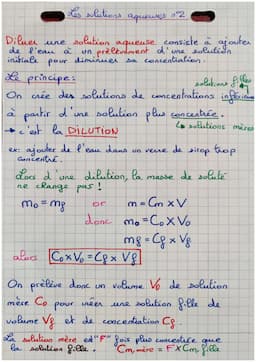 Les solutions aqueuses n°2
Diluer une solution aqueuse consiste à ajouter
de l'eau à un prélèvement d'une solution
initiale pour diminuer sa concentration.
Le principe:
solutions filles
On crée des solutions de concentrations inférieures
à partir d'une solution plus concentrée.
→ c'est la DILUTION
↳ solutions mères
ex: ajouter de l'eau dans un verre de sirop trop
concentré.
Lors d'une dilution, la masse de soluté
ne change pas!
mo = mf or m = Cm x V
donc mo = Co x Vo
mf = Cf x Vf
alors Co x Vo = Cf x Vf
On prélève donc un volume Vo de solution
mère Co pour créer une solution fille de
volume Vf et de concentration Cf.
La solution mère est "F" fois plus concentrée que
la solution fille. Cm, mère = F x Cm, fille